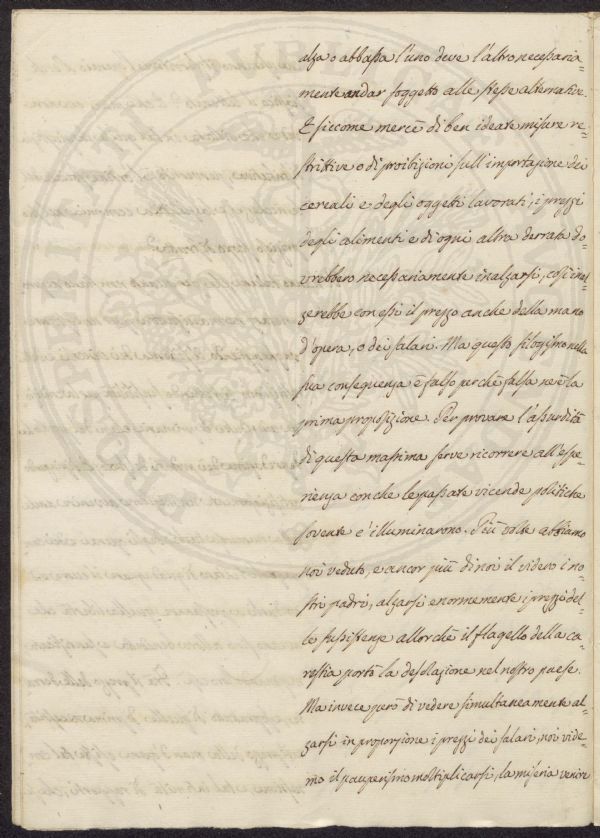 alza o abbassa l'uno deve l'altro necessaria=
mente andar soggetto alle stesse alternative.
E siccome mercè di ben ideate misure re=
strittive o di proibizioni sull'importazione dei
cereali e degli oggetti lavorati, i prezzi
degli alimenti e di ogni altra derrata do=
vrebbero necessariamente inalzarsi, così inal=
zerebbe con essi il prezzo anche della mano
d'opera, o dei salari. Ma questo sillogismo nella
sua conseguenza è falso perchè falsa ne è la
prima proposizione. Per provare l'assurdità
di questa massima serve ricorrere all'espe=
rienza con che le passate vicende politiche
sovente c'illuminarono. Più volte abbiamo
noi veduto, e ancor più di noi il videro i no=
stri padri, alzarsi enormemente i prezzi del=
le sussistenze allorchè il flagello della ca=
restia portò la desolazione nel nostro paese.
Ma invece però di vedere simultaneamente al=
zarsi in proporzione i prezzi dei salari, noi vide=
mo il pauperismo moltiplicarsi, la miseria venire